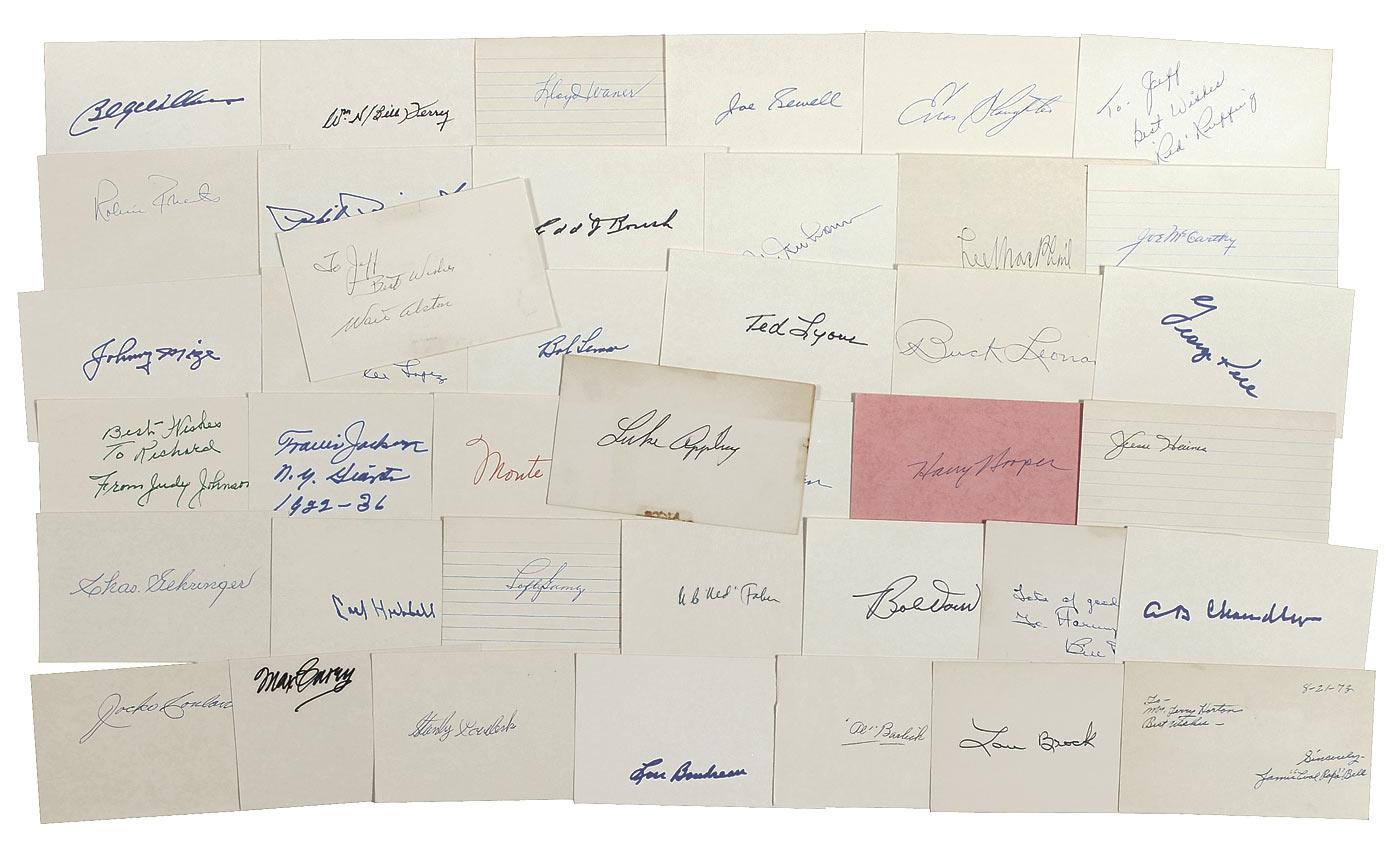 Wm N (Bill) Terry
Lloyd Waner
Joe Sewell
Enos Slaughter
To- Jeff
Best Wishes
'Red' Ruffing
Robin Roberts
Edd J Roush
Lee MacPhail
Joe McCarthy
To Jeff
Best Wishes
Walt Alston
Johnny Mize
Lopez
Bob Lemon
Ted Lyons
Buck Leona
George Kell
Best Wishes
To Richard
From Judy Johnson
Travis Jackson
N.Y. Giants
1922-36
Monte
Luke Appling
Harry Hooper
Jesse Haines
Chas. Gehringer
Carl Hubbell
Lefty Gomez
"Red" Faber
Bob
Lots of good
To Harvey
Bill
A B Chandler
Jocko Conlan
Max Carey
Stanley Coveleski
Lou Boudreau
"Al" Barlick
Lou Brock
8-21-73
To-
Mr. Terry Horton
Best Wishes-
Sincerely-
James "Cool Papa" Bell